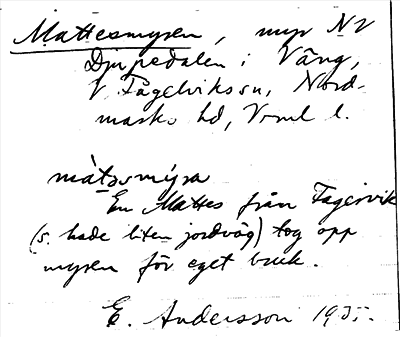 Mattesmyren, myr NV
Djupedalen i Vång,
V. Fågelvikssn, Nord-
marks hd, Vrml l.
mát
En Mattes från Fagervik
(s. hade liten jordväg) tog opp
myren för eget bruk.
E. Andersson